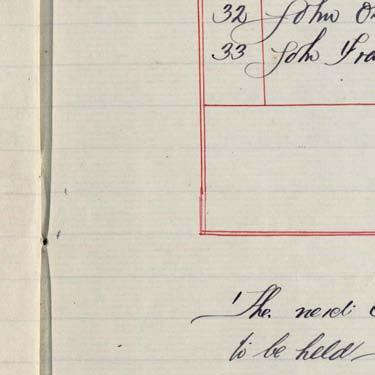 32 John
33 John
The next
to be held